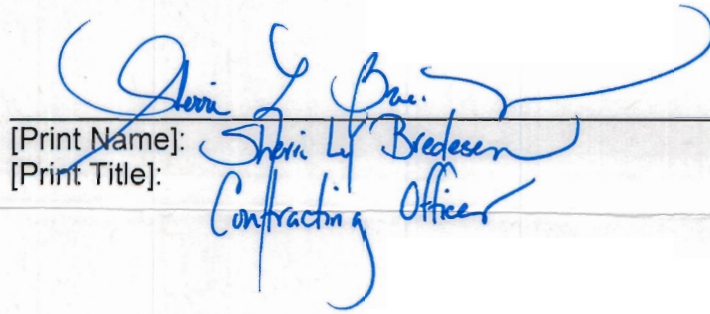 Sherri L Bre.
[Print Name]: Sherri L Bredesen
[Print Title]:
Contracting Officer